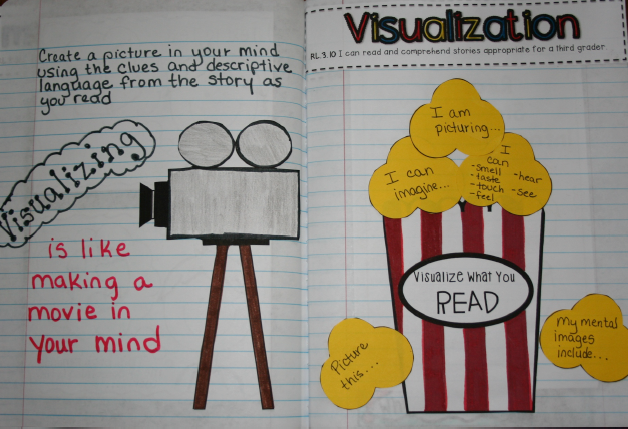 Create a picture in your mind
using the clues and descriptive
language from the story as
you read
Visualizing
is like
making a
movie in
your mind
Visualization
RL.3.10 I can read and comprehend stories appropriate for a third grader
I am
picturing...
I can
imagine...
I
can
-smell
-taste
-touch
-feel
-hear
-see
Visualize What You
READ
Picture
this...
My mental
images
include...